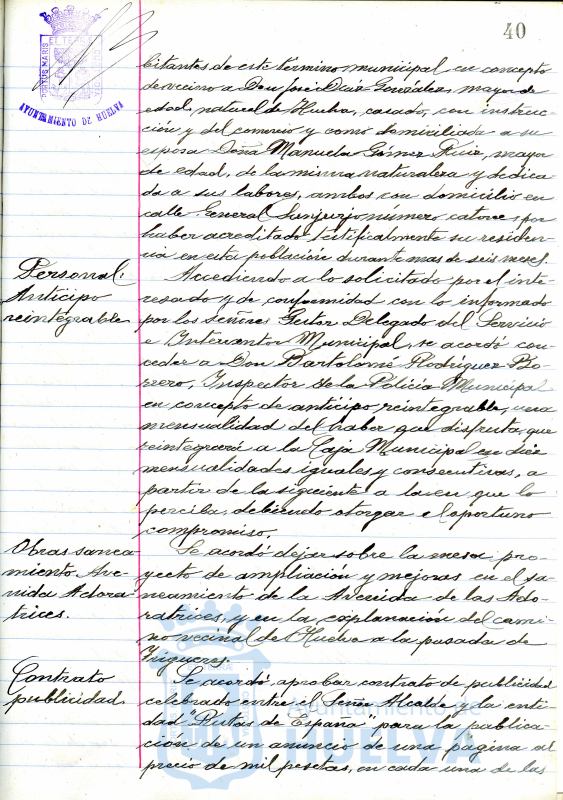 40
PORTUS MARIS
AYUNTAMIENTO DE HUELVA
bitantes de este término municipal, en concepto
de vecino a Don José Díaz González, mayor de
edad, natural de Huelva, casado, con instruc-
ción y del comercio y como domiciliada a su
esposa Doña Manuela Gómez Ruiz, mayor
de edad, de la misma naturaleza y dedica-
da a sus labores, ambos con domicilio en
calle General Sanjurjo número catorce, por
haber acreditado testificalmente su residen-
cia en esta población durante mas de seis meses.
Personal.
Anticipo
reintegrable.
Accediendo a lo solicitado por el inte-
resado y de conformidad con lo informado
por los Señores Gestor Delegado del Servicio
e Interventor Municipal, se acordó con-
ceder a Don Bartolomé Rodríguez Bo-
rrero, Inspector de la Policía Municipal
en concepto de anticipo reintegrable, una
mensualidad del haber que disfruta, que
reintegrará a la Caja Municipal en diez
mensualidades iguales y consecutivas, a
partir de la siguiente a la en que lo
perciba, debiendo otorgar el oportuno
compromiso.
Obras sanea-
miento Ave-
nida Adora-
trices.
Se acordó dejar sobre la mesa pro-
yecto de ampliación y mejoras en el sa-
neamiento de la Avenida de las Ado-
ratrices, y en la explanación del cami-
no vecinal de Huelva a la pasada de
Trigueros.
Contrato
publicidad.
Se acordó aprobar contrato de publicidad
celebrado entre el Señor Alcalde y la enti-
dad "Rutas de España" para la publica-
cion de un anuncio de una página al
precio de mil pesetas, en cada una de las
Ayuntamiento de
HUELVA